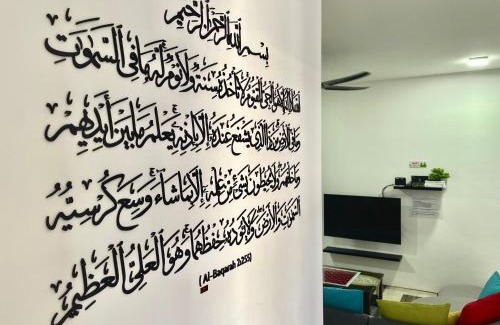 بسم الله الرحمن الرحيم
الله لا إله إلا هو الحي القيوم لا تأخذه سنة ولا نوم له ما في السموت
وما في الأرض من ذا الذي يشفع عنده إلا بإذنه يعلم ما بين أيديهم
وما خلفهم ولا يحيطون بشيء من علمه إلا بما شاء وسع كرسيه
السموت والأرض ولا يوده حفظهما وهو العلي العظيم
( Al-Baqarah 2:255)